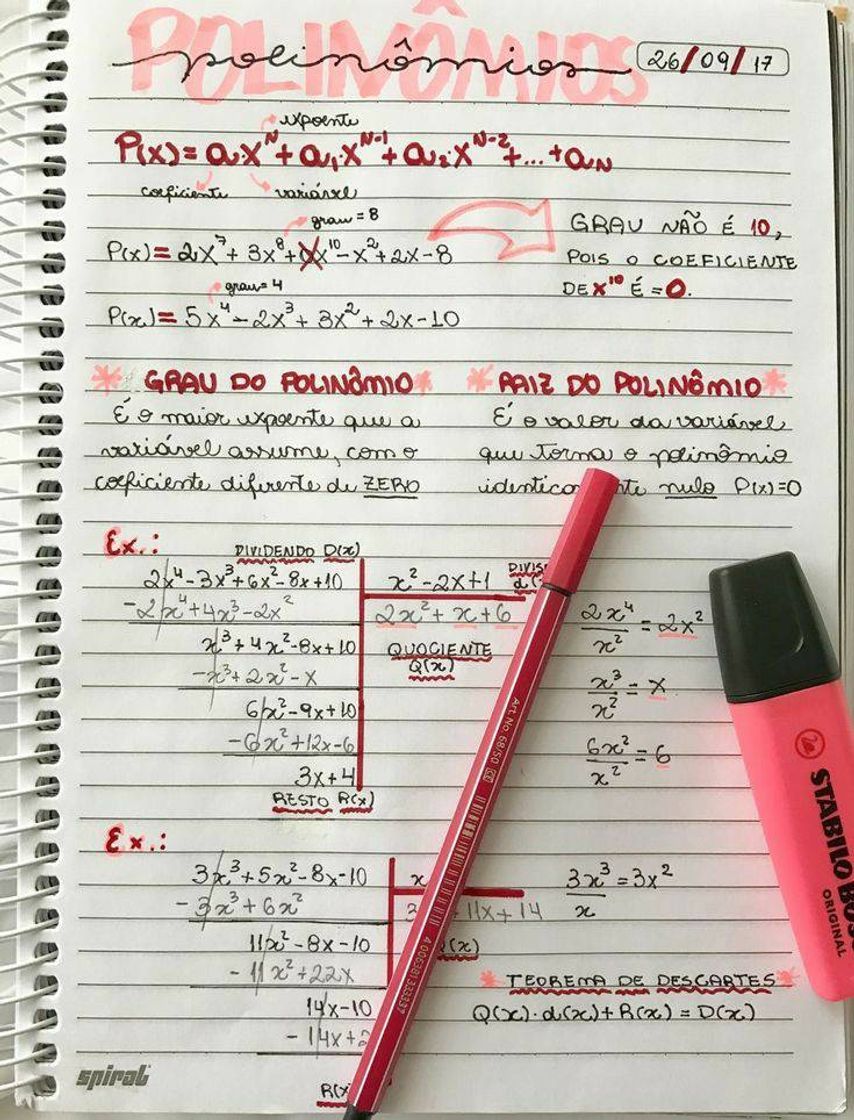 POLINÔMIOS
polinômios
26/09/17
expoente
P(x)= a.x^N + a₁.x^N-1 + a₂.x^N-2 +...+aN
coeficiente variável
grau = 8
P(x)= 2x⁷ + 3x⁸ + 0x¹⁰ - x² + 2x - 8
GRAU NÃO É 10,
POIS O COEFICIENTE
DE x¹⁰ É = 0.
grau = 4
P(x)= 5x⁴ - 2x³ + 3x² + 2x - 10
* GRAU DO POLINÔMIO *
É o maior expoente que a
variável assume, com o
coeficiente diferente de ZERO
* RAIZ DO POLINÔMIO *
É o valor da variável
que torna o polinômio
nulo P(x)=0
Ex.:
DIVIDENDO D(x)
2x⁴ - 3x³ + 6x² - 8x + 10
x² - 2x + 1
-2x⁴ + 4x³ - 2x²
2x² + x + 6
x³ + 4x² - 8x + 10
QUOCIENTE
Q(x)
-x³ + 2x² - x
6x² - 9x + 10
-6x² + 12x - 6
3x + 4
RESTO R(x)
2x⁴/x² = 2x²
x³/x² = x
6x²/x² = 6
Ex.:
3x³ + 5x² - 8x - 10
x
-3x³ + 6x²
3 + 11x + 14
11x² - 8x - 10
(x)
-11x² + 22x
14x - 10
-14x + 2
R(x
3x³/x = 3x²
* TEOREMA DE DESCARTES *
Q(x).d(x)+R(x) = D(x)
spiral
Art. No. 68/50
4 006381 333337
STABILO BOSS
ORIGINAL